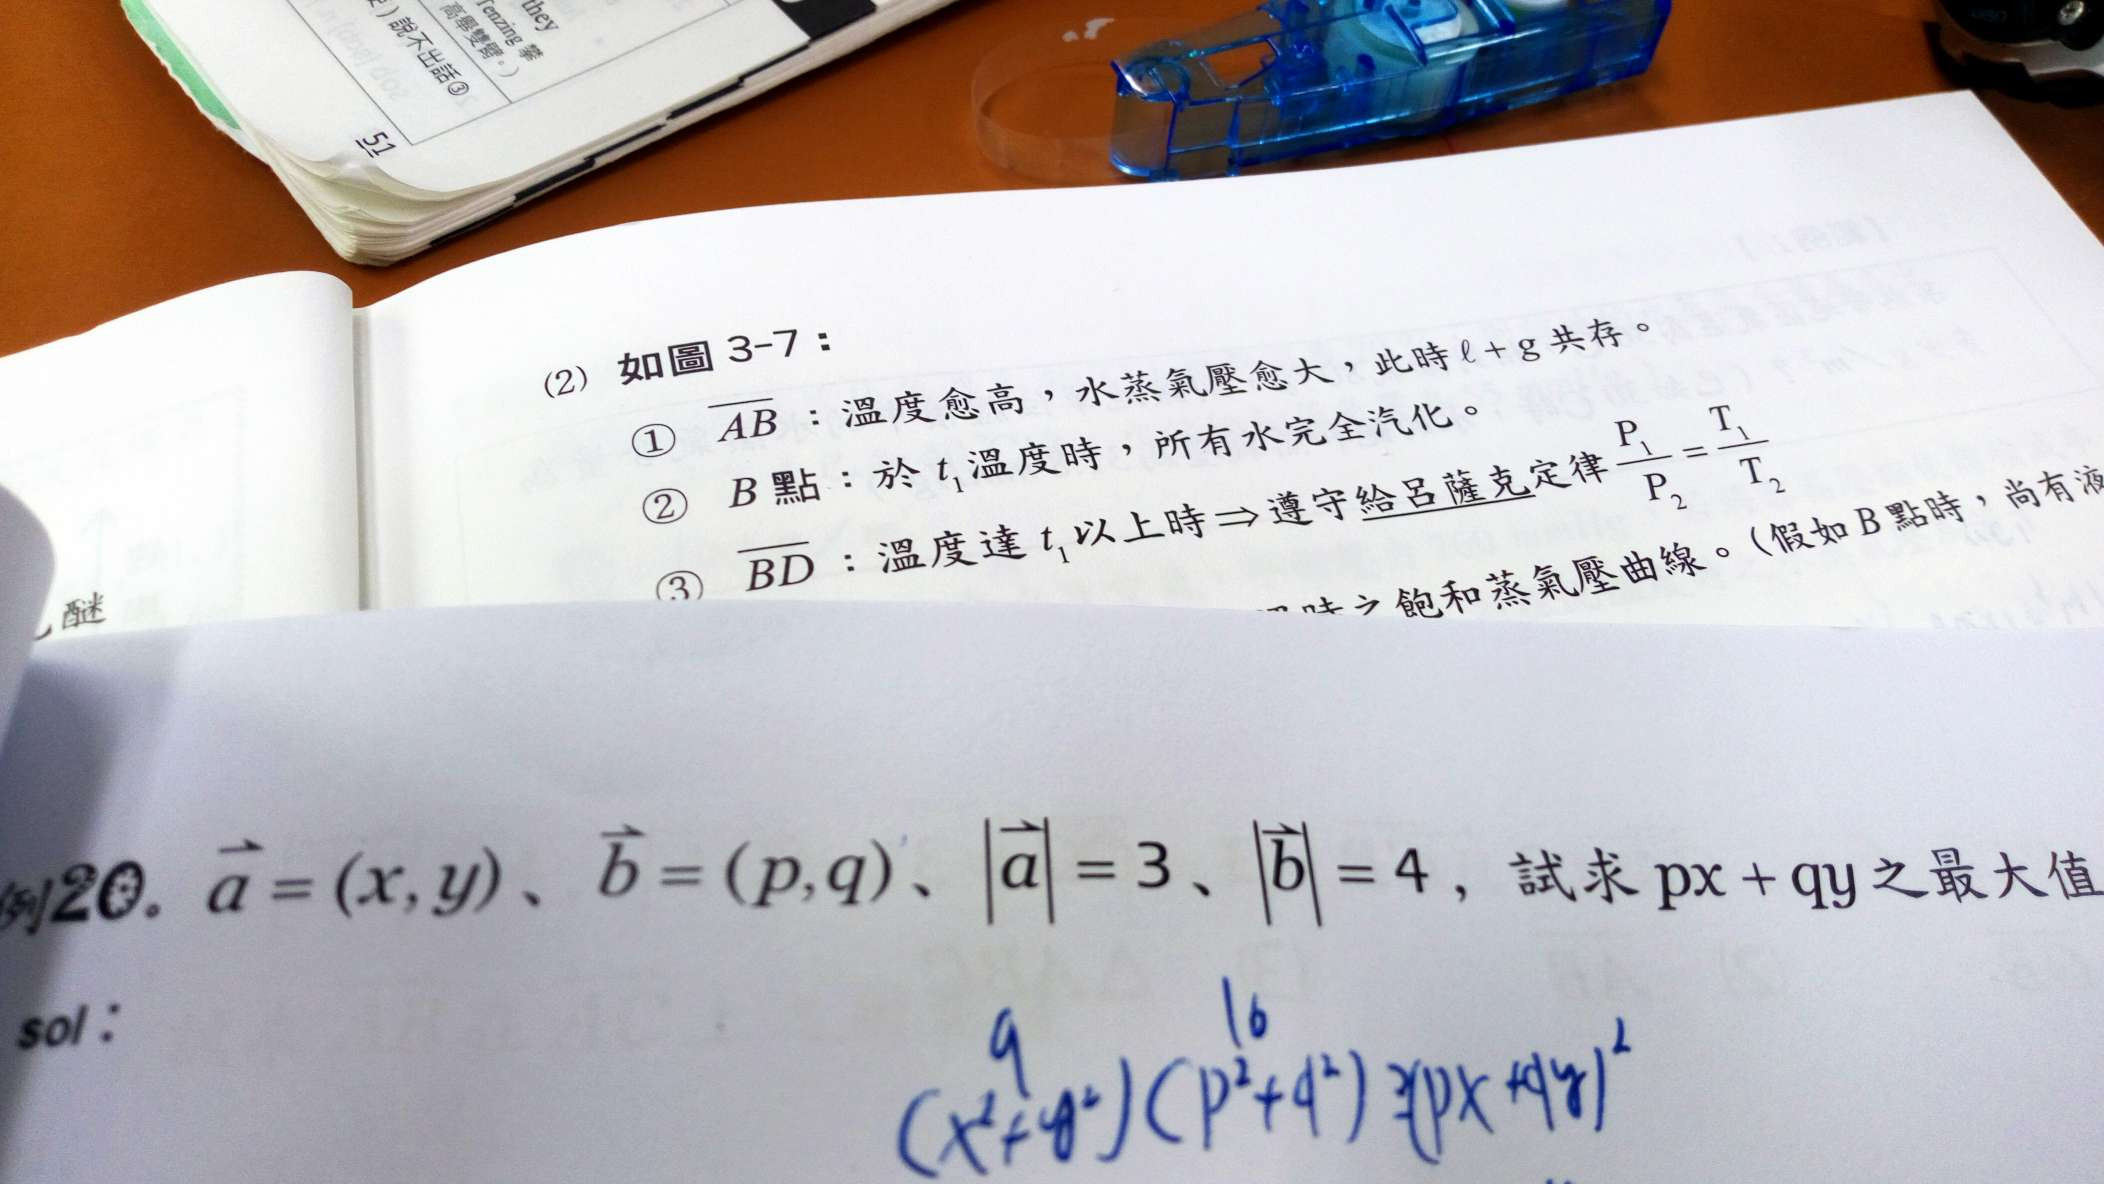 they
Tenzing 攀
高舉雙臂。)
說不出話③
51
(2) 如圖 3-7：
① AB：溫度愈高，水蒸氣壓愈大，此時 ℓ + g 共存。
② B 點：於 t₁ 溫度時，所有水完全汽化。
③ BD：溫度達 t₁ 以上時⇒遵守給呂薩克定律 P₁/P₂ = T₁/T₂
之飽和蒸氣壓曲線。(假如 B 點時，尚有液
醚
例20. a⃗ = (x, y)、b⃗ = (p, q)、|a⃗| = 3、|b⃗| = 4，試求 px + qy 之最大值
sol：
9 16
(x²+y²)(p²+q²) ≥ (px+qy)²